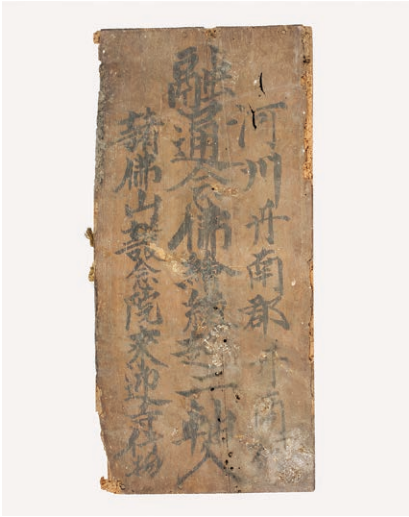 河州丹南郡丹南村
融通念佛絵縁起二軸入
諸佛山護念院来迎寺什物